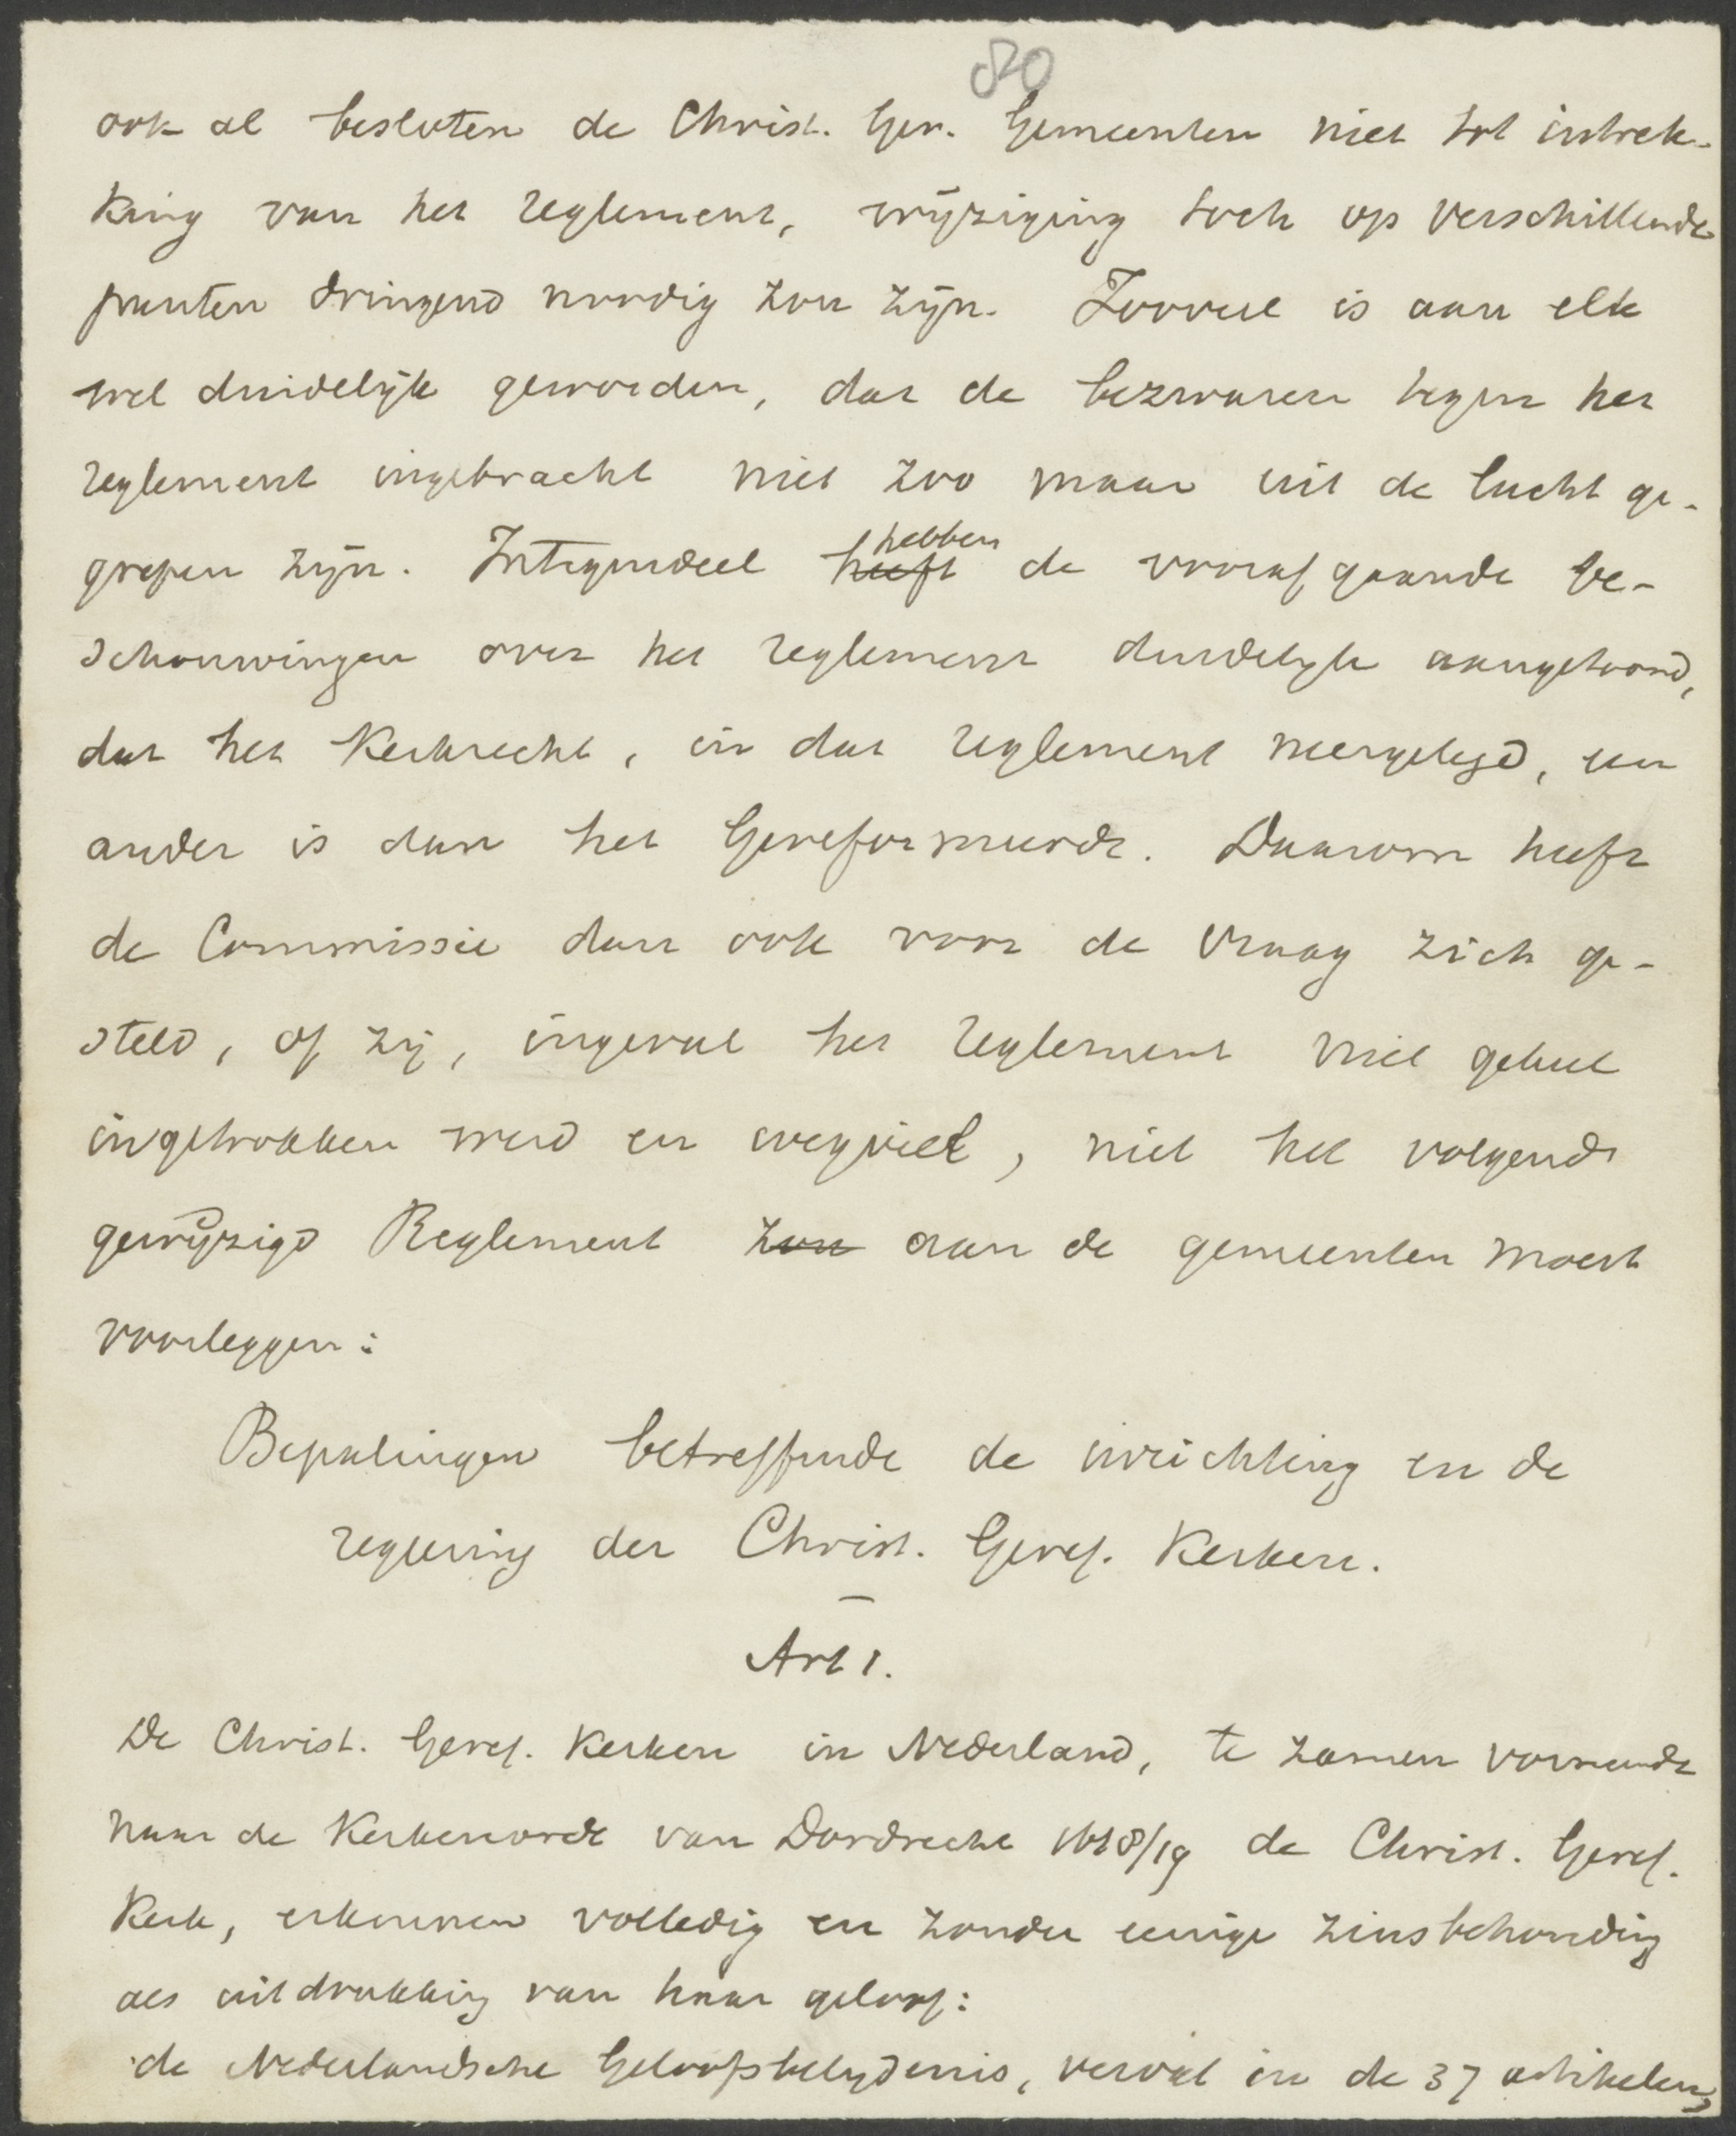 80
ook al besloten de Christ. Ger. Gemeenten niet tot intrek-
king van het reglement, wijziging toch op verschillende
punten dringend noodig zou zijn. Zooveel is aan elk
wel duidelijk geworden, dat de bezwaren tegen het
reglement ingebracht niet zoo maar uit de lucht ge-
grepen zijn. Integendeel heeft hebben de voorafgaande be-
schouwingen over het reglement duidelijk aangetoond,
dat het Kerkrecht, in dat reglement neergelegd, een
ander is dan het Gereformeerde. Daarom heeft
de Commissie dan ook voor de vraag zich ge-
steld, of zij, ingeval het reglement niet geheel
ingetrokken werd en wegviel, niet het volgende
gewijzigd Reglement zou aan de gemeenten moest
voorleggen:
Bepalingen betreffende de inrichting en de
regeering der Christ. Geref. Kerken.
Art 1.
De Christ. Geref. Kerken in Nederland, te zamen vormende
naar de Kerkenorde van Dordrecht 1618/19 de Christ. Geref.
Kerk, erkennen volledig en zonder eenige zinsbehouding
als uitdrukking van haar geloof:
de Nederlandsche Geloofsbelijdenis, vervat in de 37 artikelen,